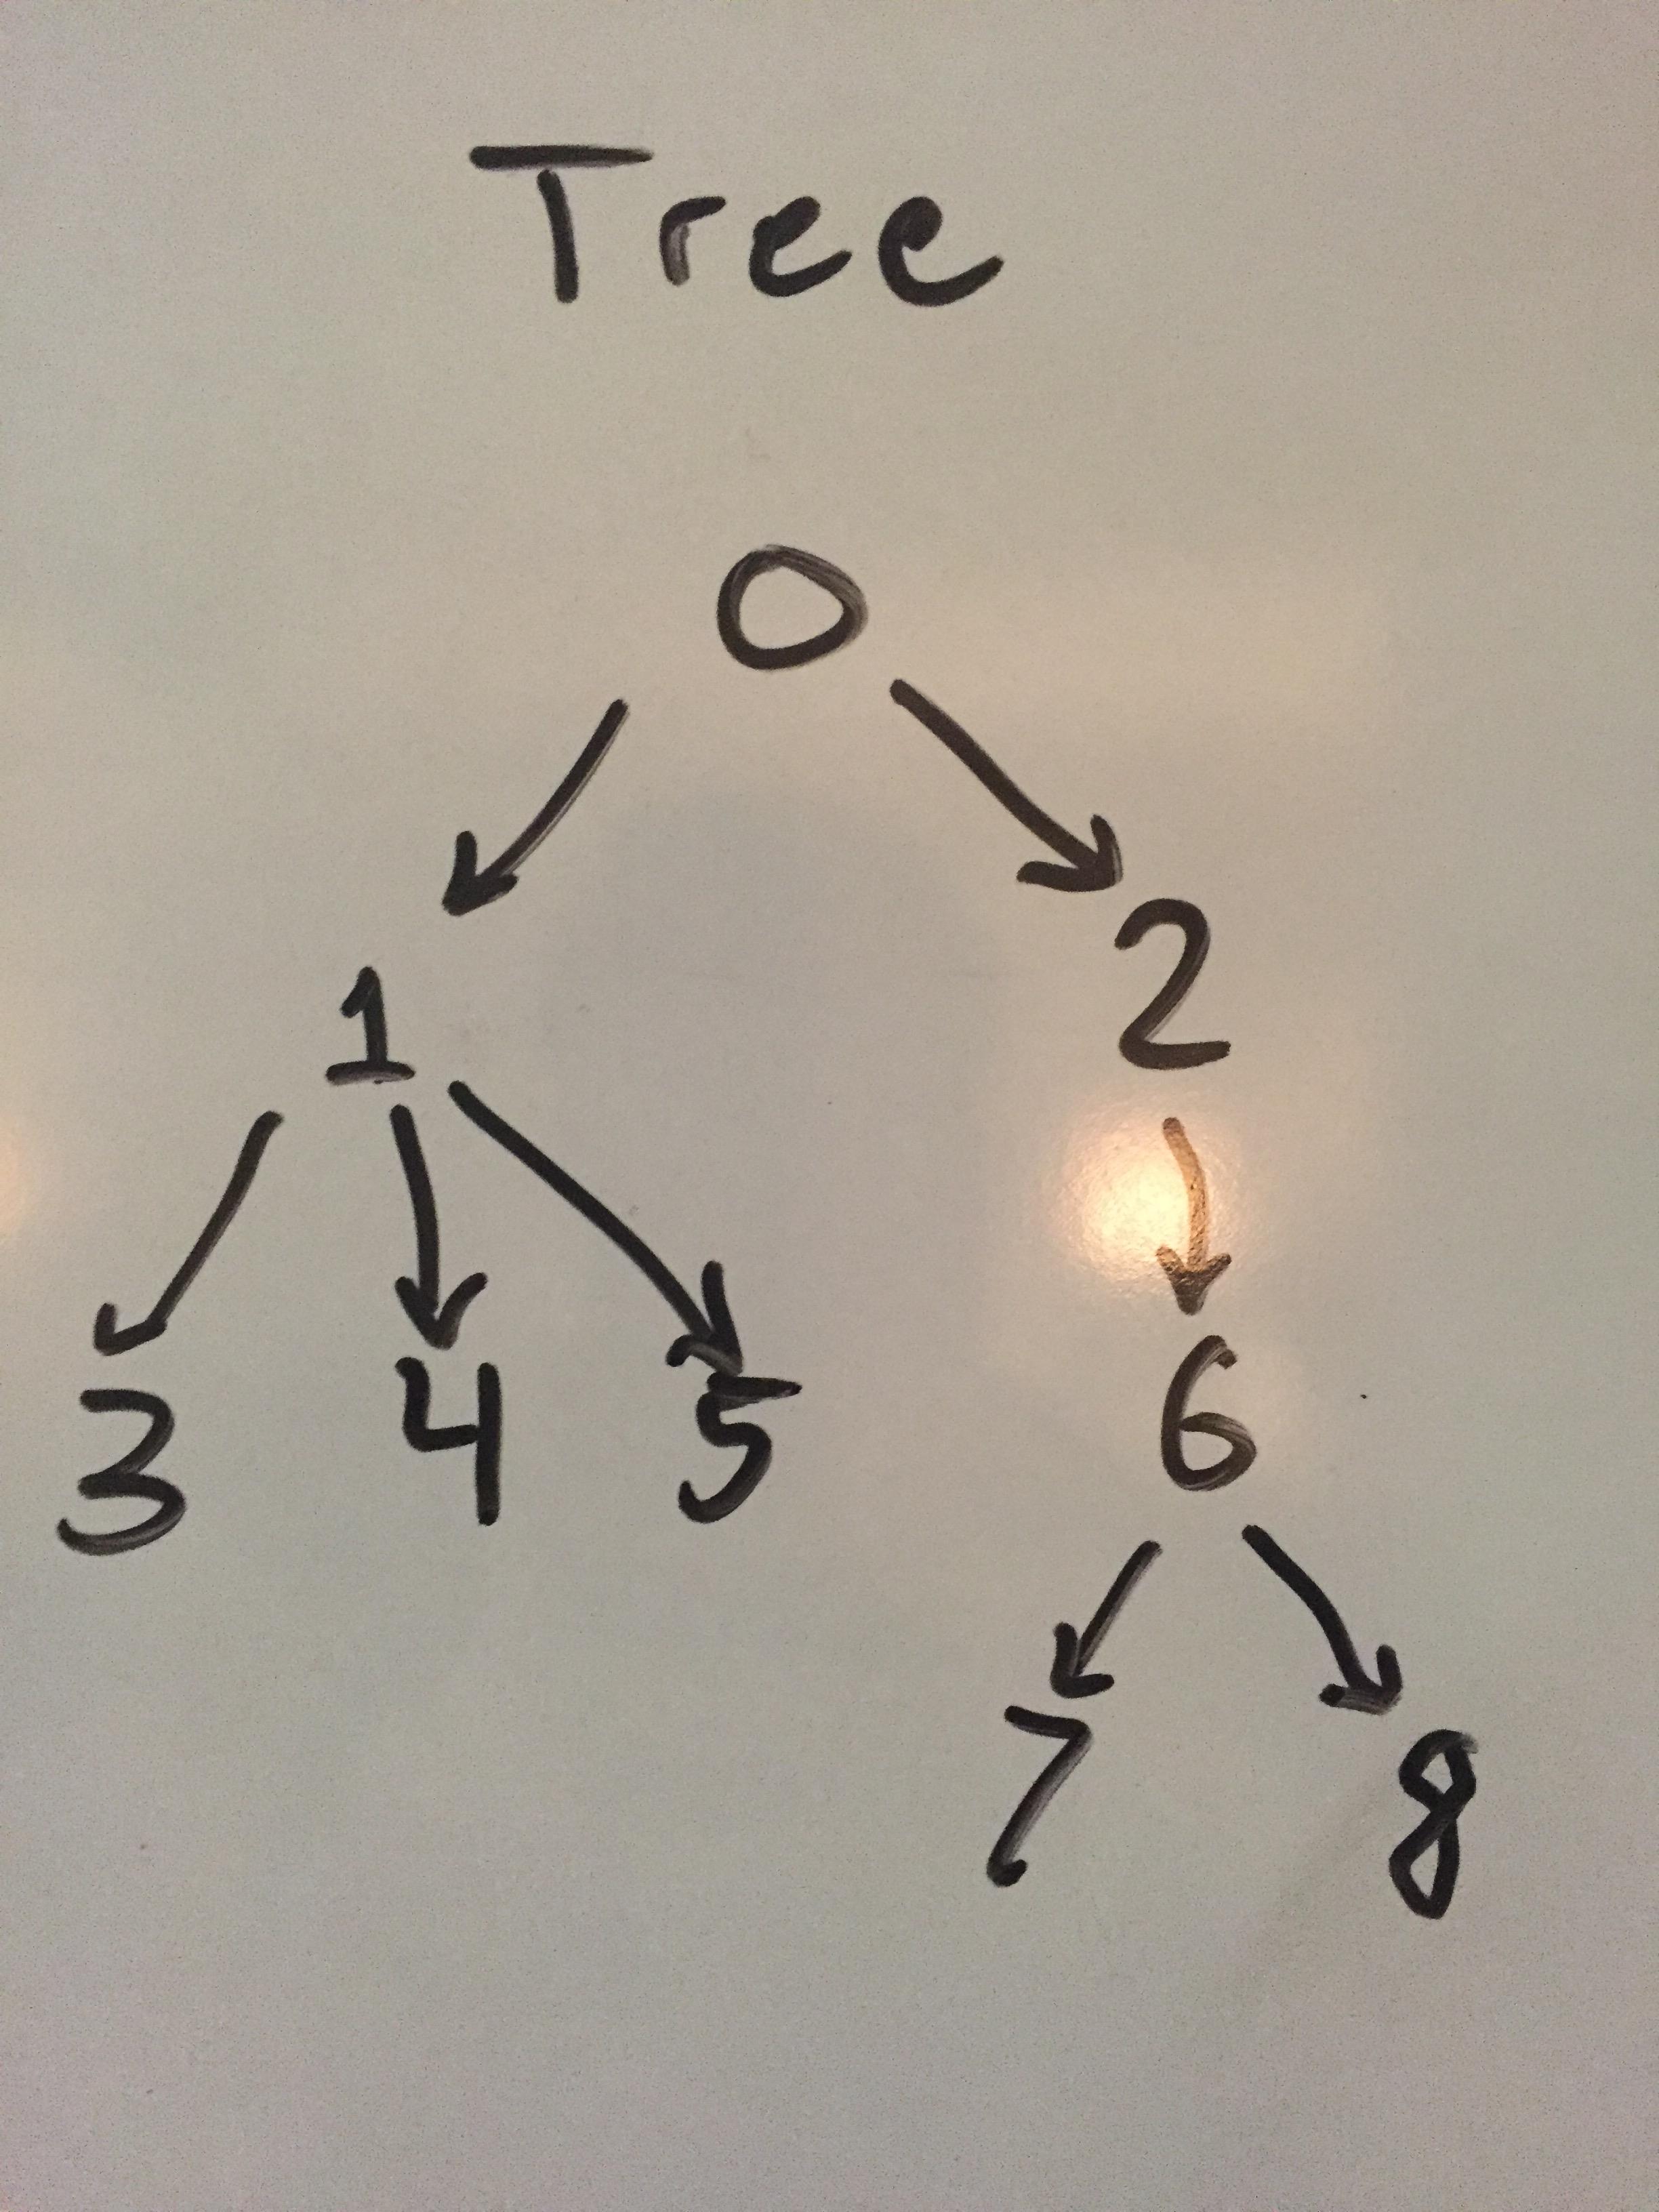 Tree
0
1 2
3 4 5 6
7 8